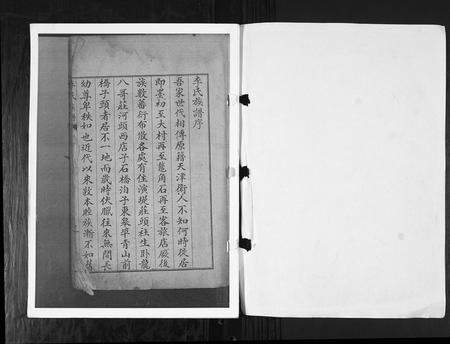 李氏族譜序
吾家世代相傳原籍天津衛人不知何時徙居
即墨初至大村再至龍角石再至客旅店厥後
族數蕃衍布散各處有住演堤莊頭社生臥龍
八哥莊河頭西店子石橋泊子東皋華青山前
橋子頭者居不一地而歲時伏臘往來無間長
幼尊卑秩如也近代以來敦本睦族漸不如舊